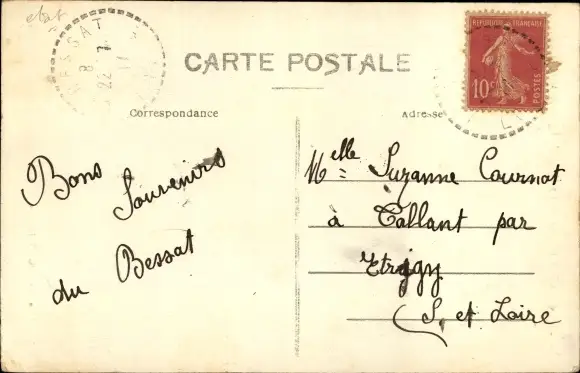 etat
BESSAT
8
22 7
17
CARTE POSTALE
RÉPUBLIQUE FRANÇAISE
10c
POSTES
Correspondance
Adresse
Bons
Souvenirs
du Bessat
Melle Suzanne Cournot
à Collant par
S. et Loire